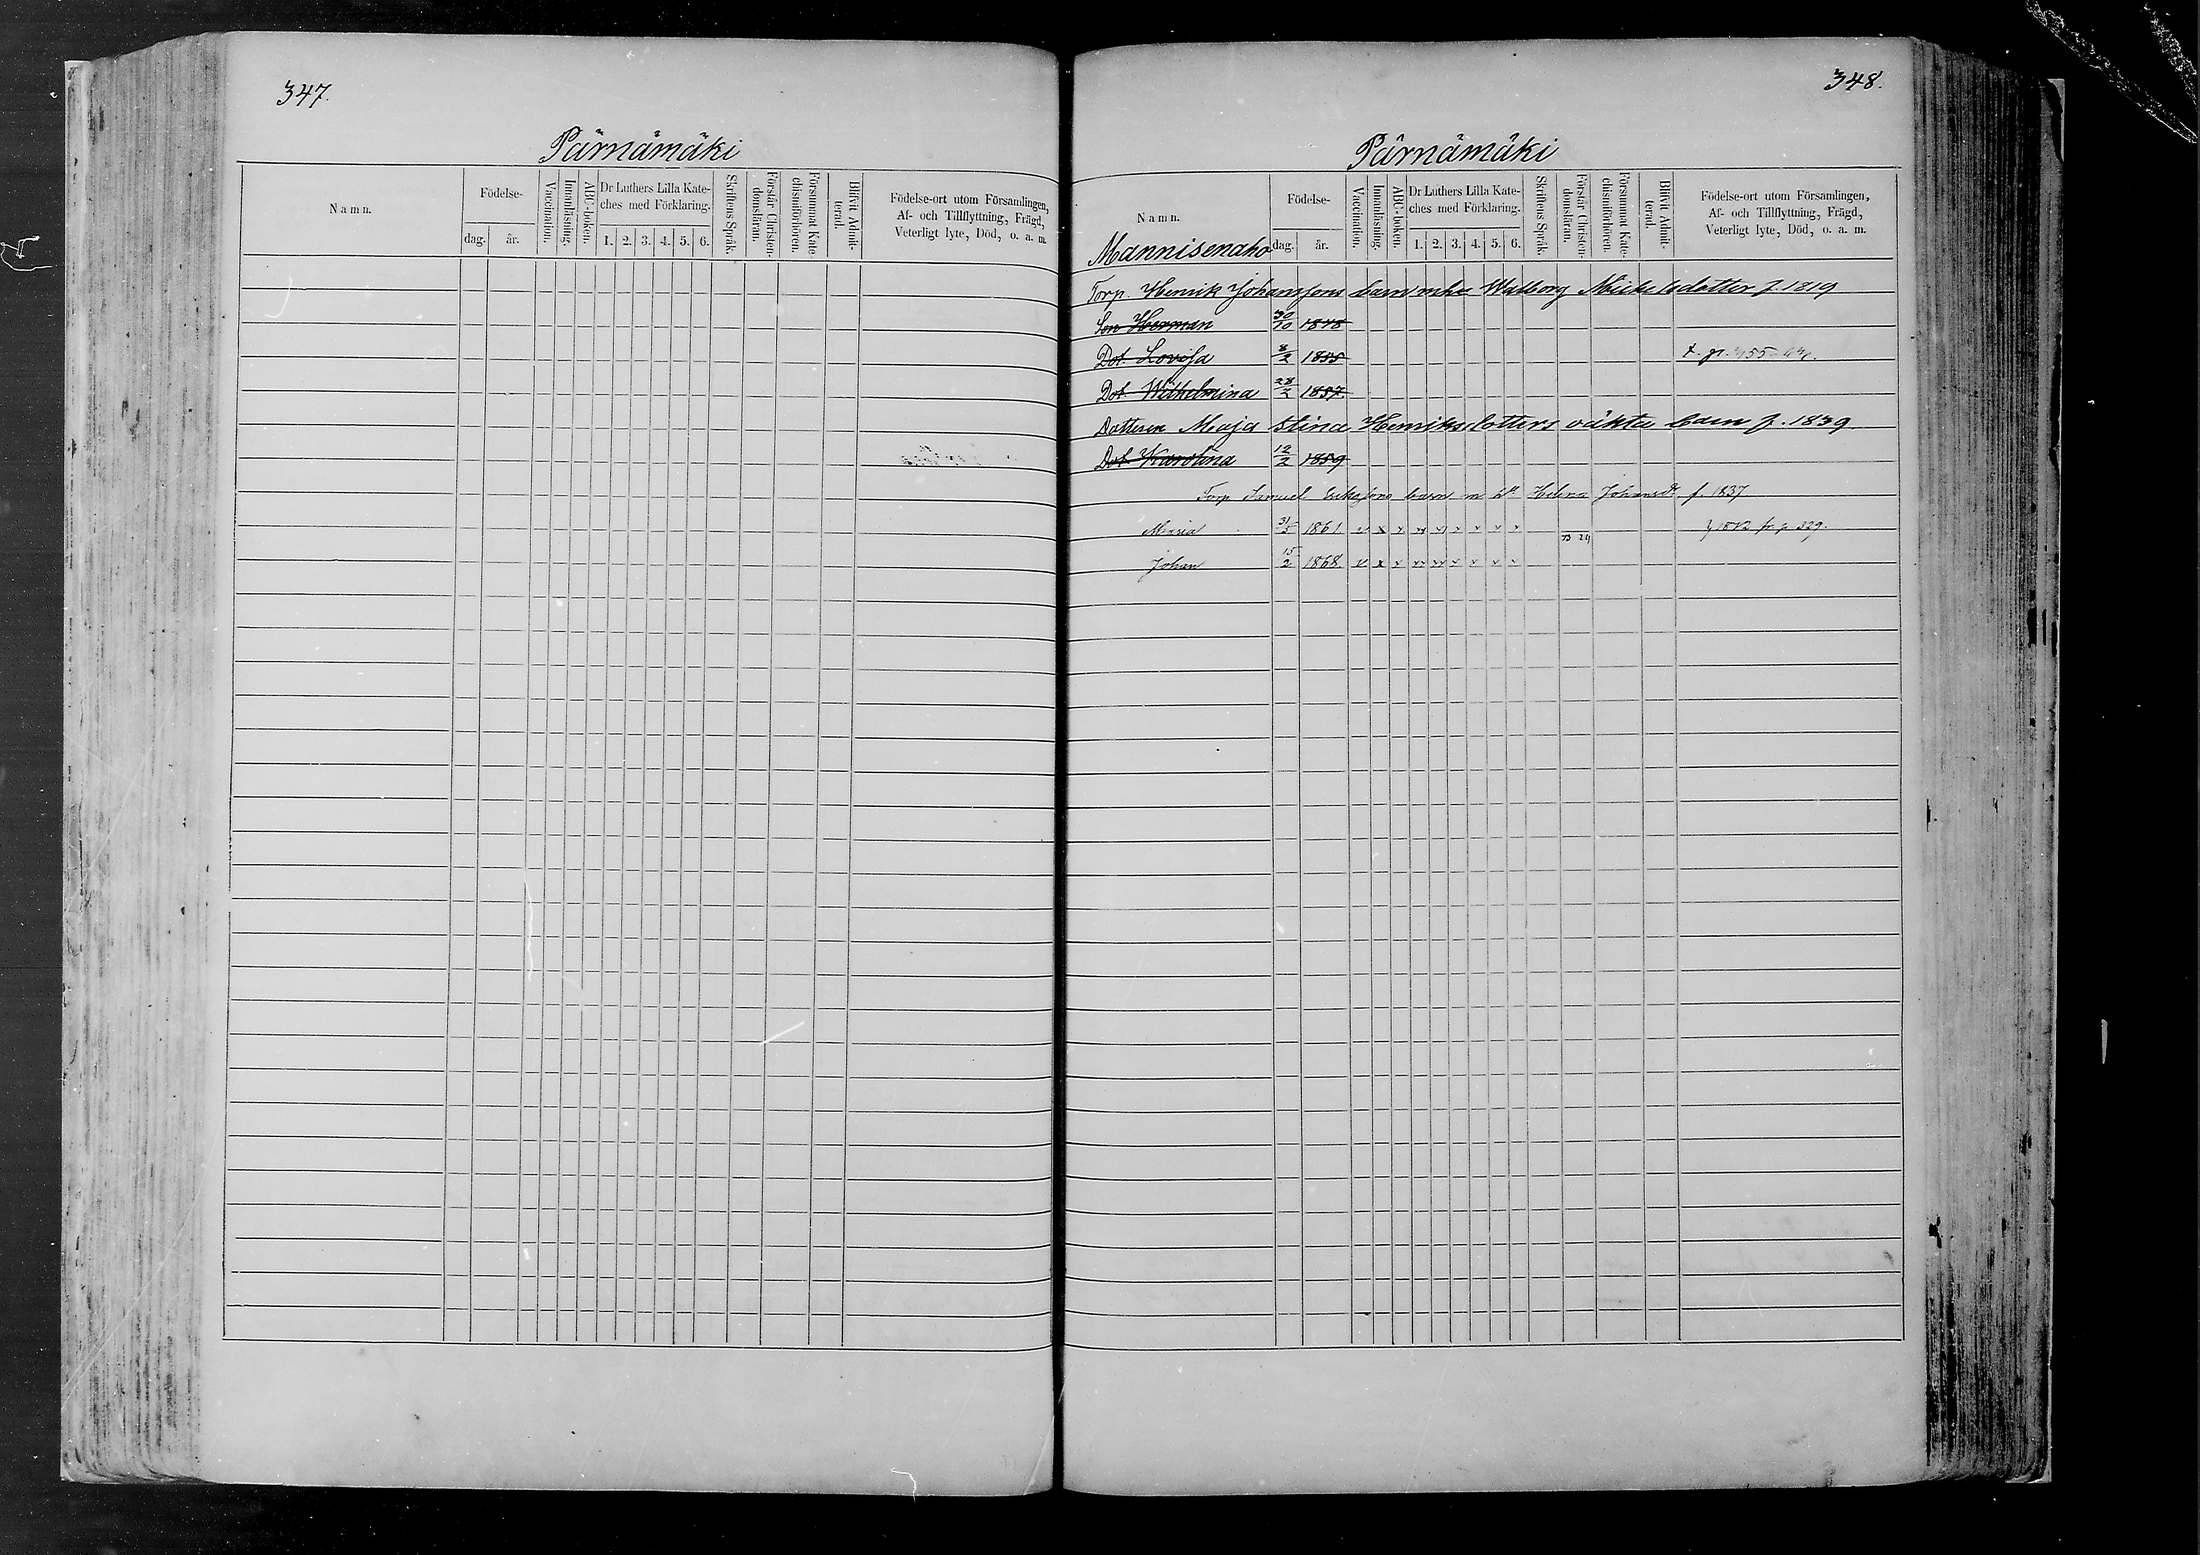 347.
Pärnämäki
Namn.
Födelse-
dag.
år.
Vaccination.
Innanläsning.
ABC-boken.
Dr Luthers Lilla Kate-
ches med Förklaring.
1. 2. 3. 4. 5. 6.
Skriftens Språk.
Förstår Christen-
domsläran.
Försummat Kate-
chismiförhören.
Blifvit Admit-
terad.
Födelse-ort utom Församlingen,
Af- och Tillflyttning, Frägd,
Veterligt lyte, Död, o. a. m.
348.
Pärnämäki
Namn.
Mannisenaho
Födelse-
dag.
år.
Vaccination.
Innanläsning.
ABC-boken.
Dr Luthers Lilla Kate-
ches med Förklaring.
1. 2. 3. 4. 5. 6.
Skriftens Språk.
Förstår Christen-
domsläran.
Försummat Kate-
chismiförhören.
Blifvit Admit-
terad.
Födelse-ort utom Församlingen,
Af- och Tillflyttning, Frägd,
Veterligt lyte, Död, o. a. m.
Torp. Henrik Johanssons barn m hu Walborg Mickelsdotter f. 1819
Son Herman 30/10 1848
Dot. Lovisa 8/2 1855
Dot. Wilhelmina 28/2 1857
Dotteren Maja Stina Henriksdotters oäkta barn f. 1839
Dot. Karolina 12/2 1859
Torp Samuel Erikssons barn m h. Helena Johansdr f. 1837
Maria 31/5 1861 73 24 1872 fr. p. 329.
Johan 15/2 1868